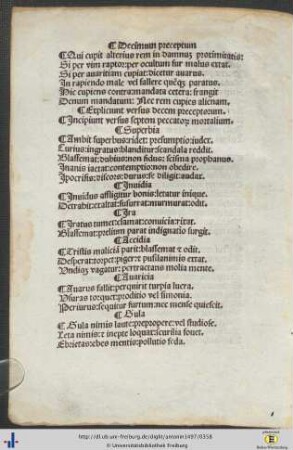 ¶ Decimum preceptum
¶ Qui cupit alterius rem in damnum proximitatis:
Si per vim raptor: per occultum fur malus extat.
Si per auaritiam cupiat: dicetur auarus.
In rapiendo male vel fallere quenquam paratus.
Hic cupiens contra mandata cetera: frangit
Denum mandatum: Nec rem cupies alienam.
¶ Expliciunt versus decem preceptorum.
¶ Incipiunt versus septem peccatorum mortalium.
¶ Superbia
¶ Ambit superbus: ridet: presumptio: iudex.
Curius: ingratus: blanditur: scandala reddit.
Blasfemat: dubius: non fidus: scisma prophanus.
Inanis iactat: contemptio: non obedire.
Ipocrisis: discors: durus: se diligit: audax.
¶ Inuidia
¶ Inuidus affligitur bonis: letatur inique.
Detrahit: exaltat: susurrat: murmurat: odit.
¶ Ira
¶ Iratus tumet: clamat: conuicia: ritat.
Blasfemat: prelium parat indignatio surgit.
¶ Accidia
¶ Tristis malicia parit: blasfemat et odit.
Desperat: torpet: piger: et pusilanimo extat.
Undique vagatur: pertractans molia mente.
¶ Auaricia
¶ Auarus fallit: perquirit turpia lucra.
Plura: torquet: proditio vel simonia.
Periurus: sequitur furtum: nec mense quiescit.
¶ Gula
¶ Gula nimis laute: prepropere: vel studiose.
Leta nimis: et inepte loquax: scurilia fouet.
Ebrietas: ebes mentis: pollutio feda.
http://dl.ub.uni-freiburg.de/diglit/antonin1497/0358
© Universitätsbibliothek Freiburg